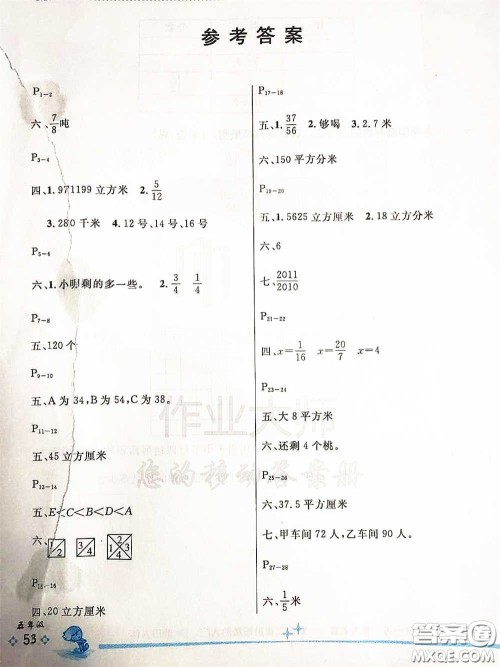 参考答案
P1-2
六、7/8吨
P3-4
四、1.971199立方米 2.5/12
3.280千米 4.12号、14号、16号
P5-6
六、1.小明剩的多一些。 2.3/4 1/4
P7-8
五、120个
P9-10
五、A为34,B为54,C为38。
P11-12
五、45立方厘米
P13-14
五、E<C<B<D<A
六、1 2 3 4 1 2 3 4
P15-16
四、20立方厘米
五年级
53
P17-18
五、1.37/56 2.够喝 3.2.7米
六、150平方分米
P19-20
五、1.5625立方厘米 2.18立方分米
六、6
七、2011/2010
P21-22
四、x=1/16 x=20/7 x=4
P23-24
五、大8平方米
六、还剩4个桃。
P25-26
六、37.5平方厘米
七、甲车间72人,乙车间90人。
P27-28
六、1/5米
作业大师
您的移动答案册
答案圈
MXQE.COM